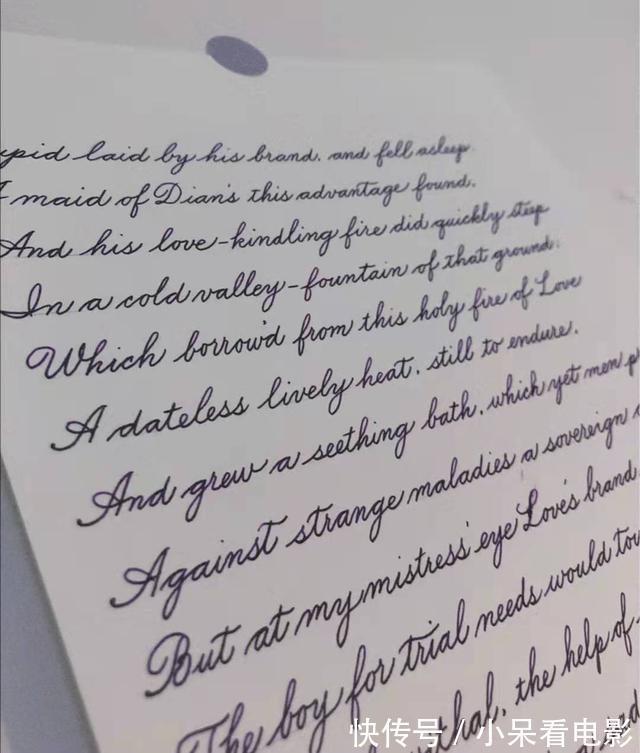 upid laid by his brand. and fell asleep
A maid of Dian's this advantage found.
And his love-kindling fire did quickly steep
In a cold valley-fountain of that ground.
Which borrow'd from this holy fire of Love
A dateless lively heat. still to endure.
And grew a seething bath. which yet men p
Against strange maladies a sovereign
But at my mistress' eye Love's brand
The boy for trial needs would tou
withal, the help of
快传号 / 小呆看电影